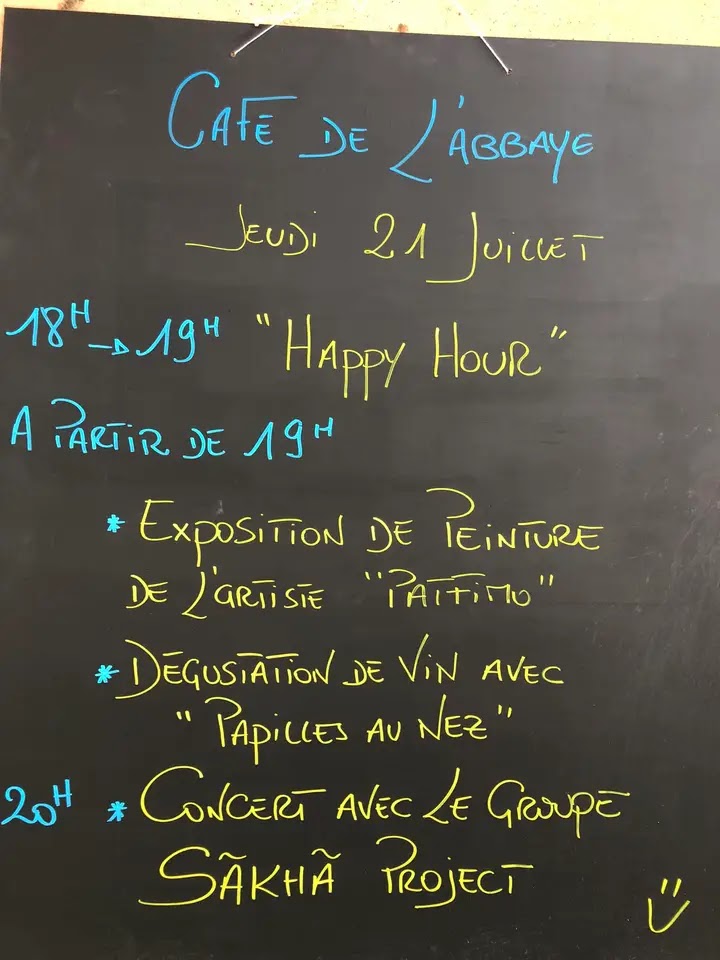 CAFE DE L'ABBAYE
JEUDI 21 JUILLET
18H → 19H "HAPPY HOUR"
A PARTIR DE 19H
* EXPOSITION DE PEINTURE
DE L'ARTISTE "PATTIMO"
* DEGUSTATION DE VIN AVEC
"PAPILLES AU NEZ"
20H * CONCERT AVEC LE GROUPE
SÃKHÃ PROJECT